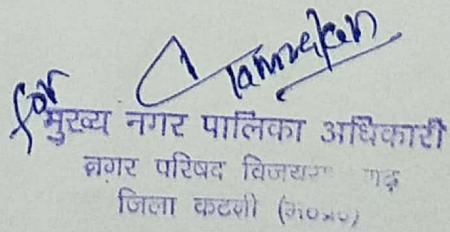 for
मुख्य नगर पालिका अधिकारी
नगर परिषद विजयरा गढ़
जिला कटनी (म०प्र०)